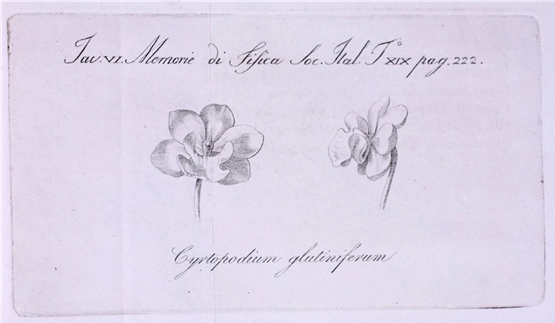 Tav. VI. Memorie di Fisica Soc. Ital. T.º XIX pag. 222.
Cyrtopodium glutiniferum